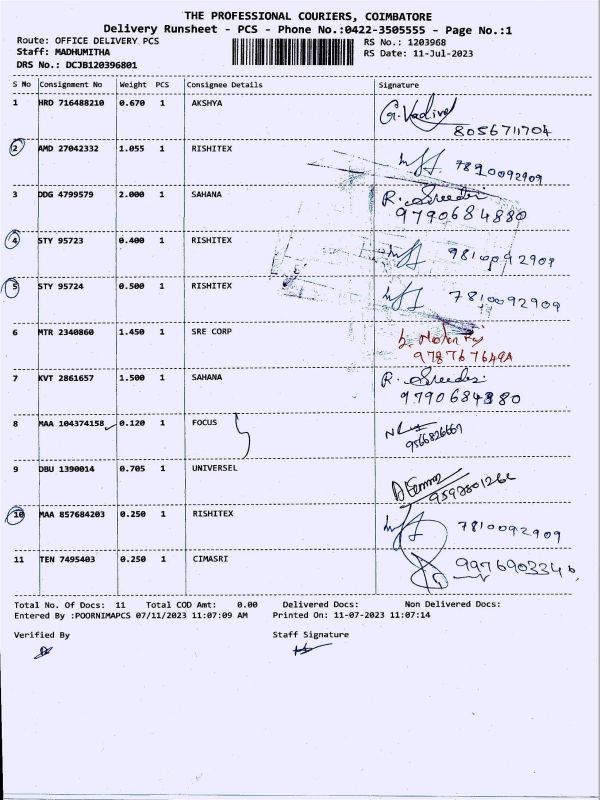 THE PROFESSIONAL COURIERS, COIMBATORE
Delivery Runsheet - PCS - Phone No.:0422-3505555 - Page No.:1
Route: OFFICE DELIVERY PCS RS No.: 1203968
Staff: MADHUMITHA RS Date: 11-Jul-2023
DRS No.: DCJB120396801
S No Consignment No Weight PCS Consignee Details Signature
1 HRD 716488210 0.670 1 AKSHYA G. Vadivel
8056711704
2 AMD 27042332 1.055 1 RISHITEX 7810092909
3 DDG 4799579 2.000 1 SAHANA R. Sreedevi
9790684880
4 STY 95723 0.400 1 RISHITEX
5 STY 95724 0.500 1 RISHITEX 7810092909
6 MTR 2340860 1.450 1 SRE CORP
7 KVT 2861657 1.500 1 SAHANA R. Sreedevi
9790684880
8 MAA 104374158 0.120 1 FOCUS
9566826669
9 DBU 1390014 0.705 1 UNIVERSEL
10 MAA 857684203 0.250 1 RISHITEX 7810092909
11 TEN 7495403 0.250 1 CIMASRI 9976903346
Total No. Of Docs: 11 Total COD Amt: 0.00 Delivered Docs: Non Delivered Docs:
Entered By :POORNIMAPCS 07/11/2023 11:07:09 AM Printed On: 11-07-2023 11:07:14
Verified By Staff Signature